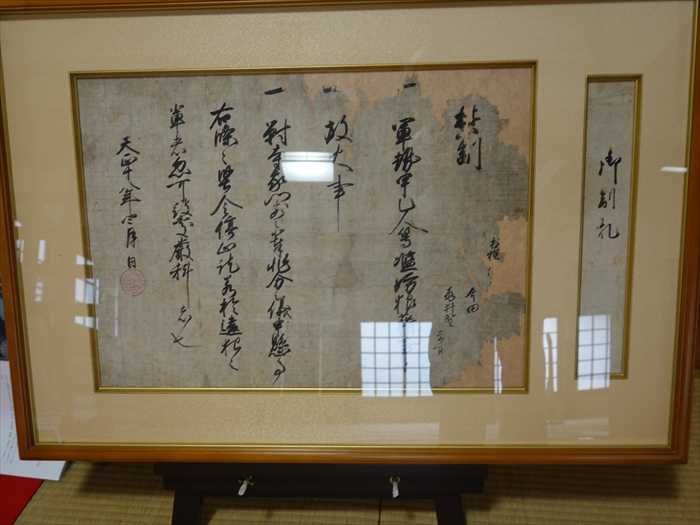 御制札
禁制
一 軍勢甲乙人等濫妨狼藉
一 放火事
一 対寺家門前之者非分之儀申懸事
右条々堅令停止訖若於違犯之
輩者忽可被処厳科者也
天正十八年四月 日